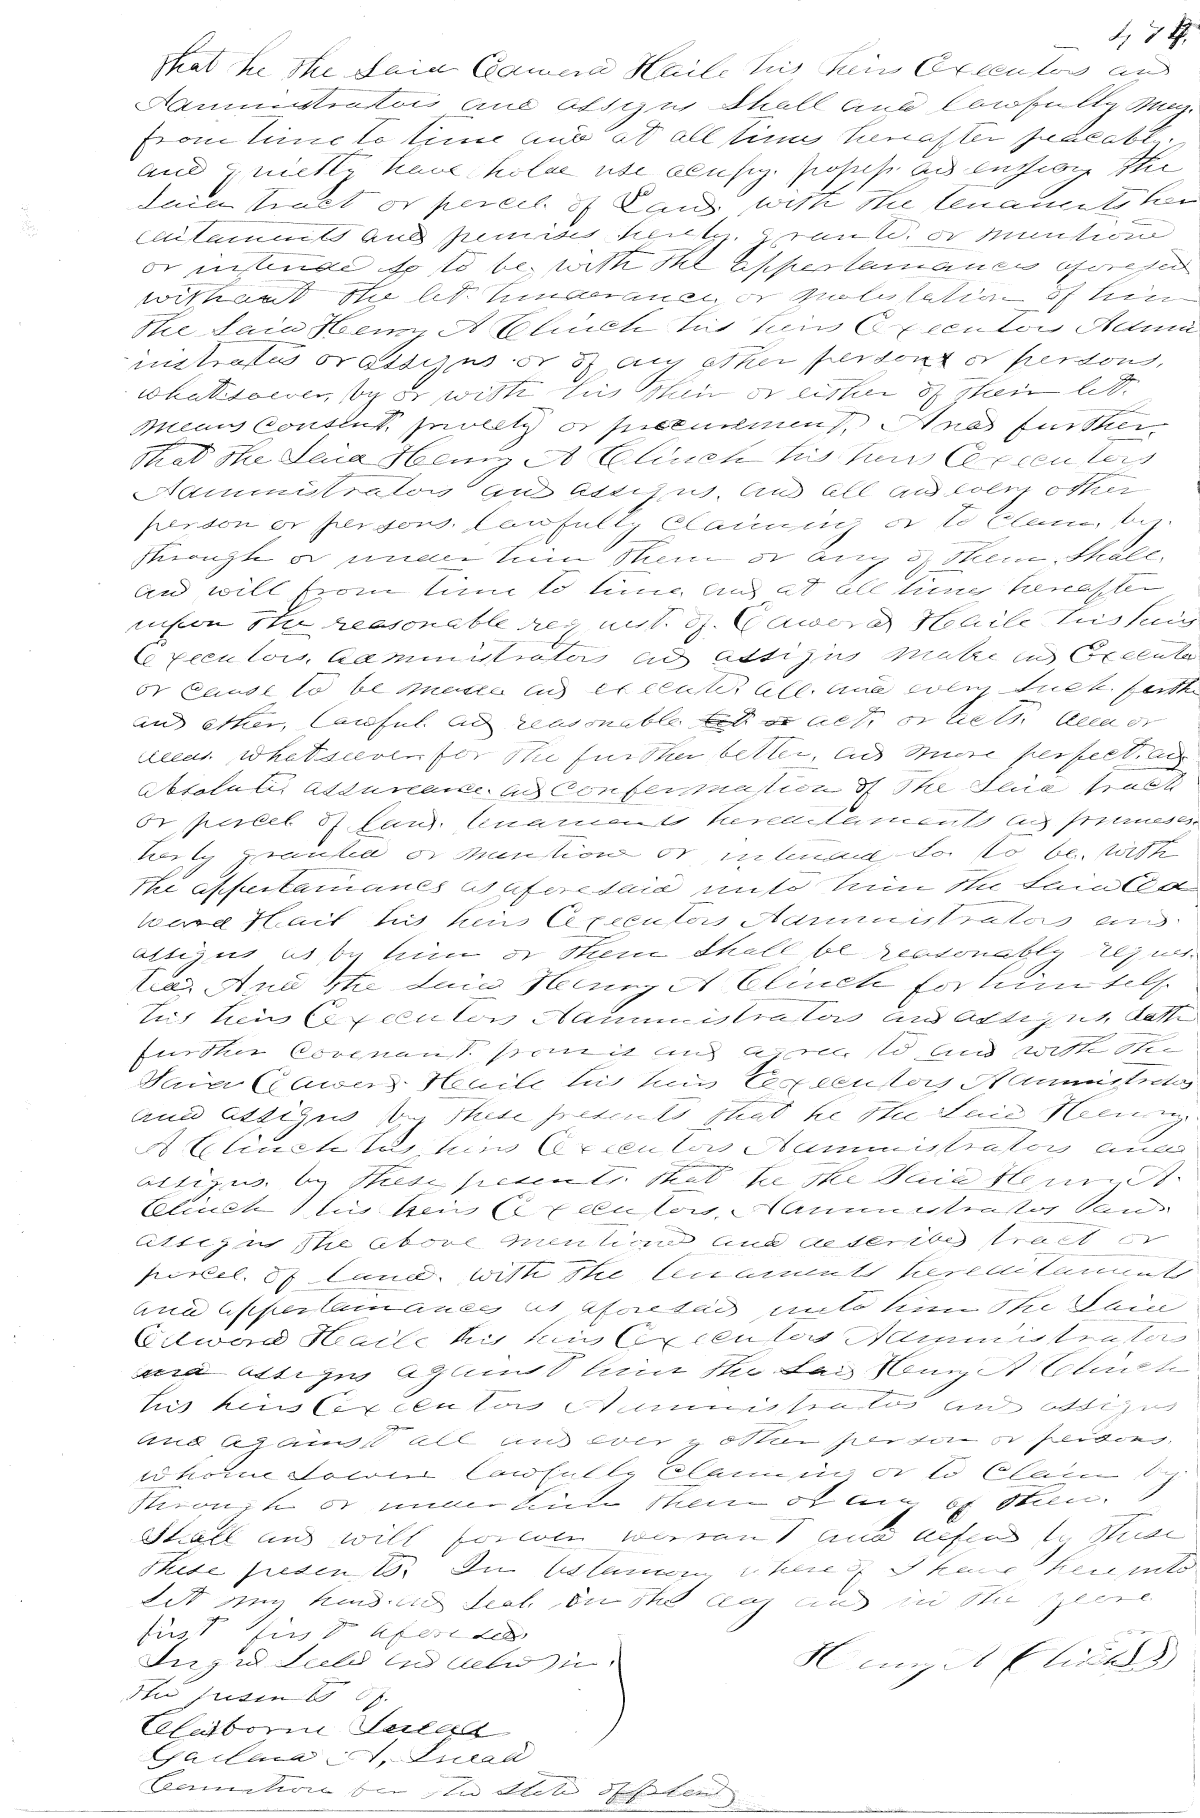 that he the Said Edward Haile his heirs Executors and
Administrators and assigns Shall and lawfully may
from time to time and at all times hereafter peacably
and quietly have hold use ocupy. posses. and enjoy the
Said tract or percel of Land. with the tenaments her
editaments and premises herely. grante. or mentione
or intende so to be with the appertainances aforesaid
without the let. hinderance or molestation of him
the Said Henry A Clinch his heirs Executors Admi
nistrators or assigns or of any other person or persons.
whatsoever, by or with his their or either of their let.
means consent. privety or procurement. And further.
that the Said Henry A Clinch his heirs Executors
Administrators and assigns. and all and every other
person or persons. lawfully claiming or to claim, by.
through or under him them or any of them. Shall.
and will from time to time and at all times hereafter
upon the reasonable request. of. Edward Haile his heirs
Executors. administrators and assigns make and Execute
or cause to be made and execute. all. and every such. furthe
and other, lawful. and reasonable act. or acts. deed or
deeds. whatsoever for the further better, and more perfect. and
absolute assureance. and confermation of the Said tract
or percel of Land. tenaments hereditaments and premeses
herly granted or mentione or intended So. to be. with
the appertainances as aforesaid unto him the Said Ed
ward Hail his heirs Executors Administrators and.
assigns as by him or them Shall be reasonably reques
ted. And the Said Henry A Clinch for him self.
his heirs Executors Administrators and assigns, doth
further Covenant. promis and agree to and with the
Said Edward. Haile his heirs Executors Administrators
and assigns by these presents that he the Said Henry.
A Clinch his heirs Executors Administrators and
assigns. by these presents. that he the Said Henry A.
Clinch his heirs Executors. Administrators and.
assigns the above mentioned and described tract or
percel. of Land. with the tenaments hereditaments
and appertainances as aforesaid unto him the Said
Edward Haile his heirs Executors Administrators
and assigns against him the Said Henry A Clinch
his heirs Executors Administrators and assigns
and against all and every other person or persons.
whome soever lawfully claiming or to claim by.
through or under him them or any of them.
Shall and will forever warrant and defend by these
these presents. In testamony whereof I have hereunto
Set my hand. and Seal. on the day and in the yeare
first first aforesaid
Henry A Clinch
the presents of.
Claiborne Snead
Garland A. Snead